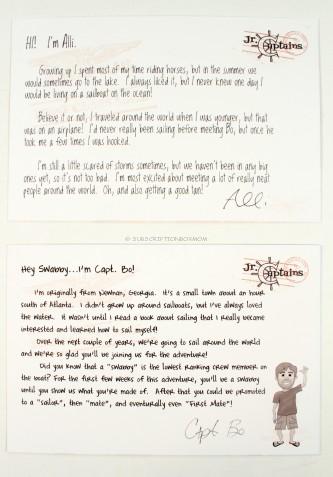 HI! I'm Alli.
Jr. Captains
Growing up I spent most of my time riding horses, but in the summer we
would sometimes go to the lake. I always liked it, but I never knew one day I
would be living on a sailboat on the ocean!
Believe it or not, I traveled around the world when I was younger, but that
was on an airplane! I'd never really been sailing before meeting Bo, but once he
took me a few times I was hooked.
I'm still a little scared of storms sometimes, but we haven't been in any big
ones yet, so it's not too bad. I'm most excited about meeting a lot of really neat
people around the world. Oh, and also getting a good tan!
Alli
© SUBSCRIPTIONBOXMOM
Hey Swabby...I'm Capt. Bo!
Jr. Captains
I'm originally from Newnan, Georgia. It's a small town about an hour
south of Atlanta. I didn't grow up around sailboats, but I've always loved
the water. It wasn't until I read a book about sailing that I really became
interested and learned how to sail myself!
Over the next couple of years, we're going to sail around the world
and we're so glad you'll be joining us for the adventure!
Did you know that a "swabby" is the lowest ranking crew member on
the boat? For the first few weeks of this adventure, you'll be a swabby
until you show us what you're made of. After that you could be promoted
to a "sailor", then "mate", and eventually even "First Mate"!
Capt. Bo